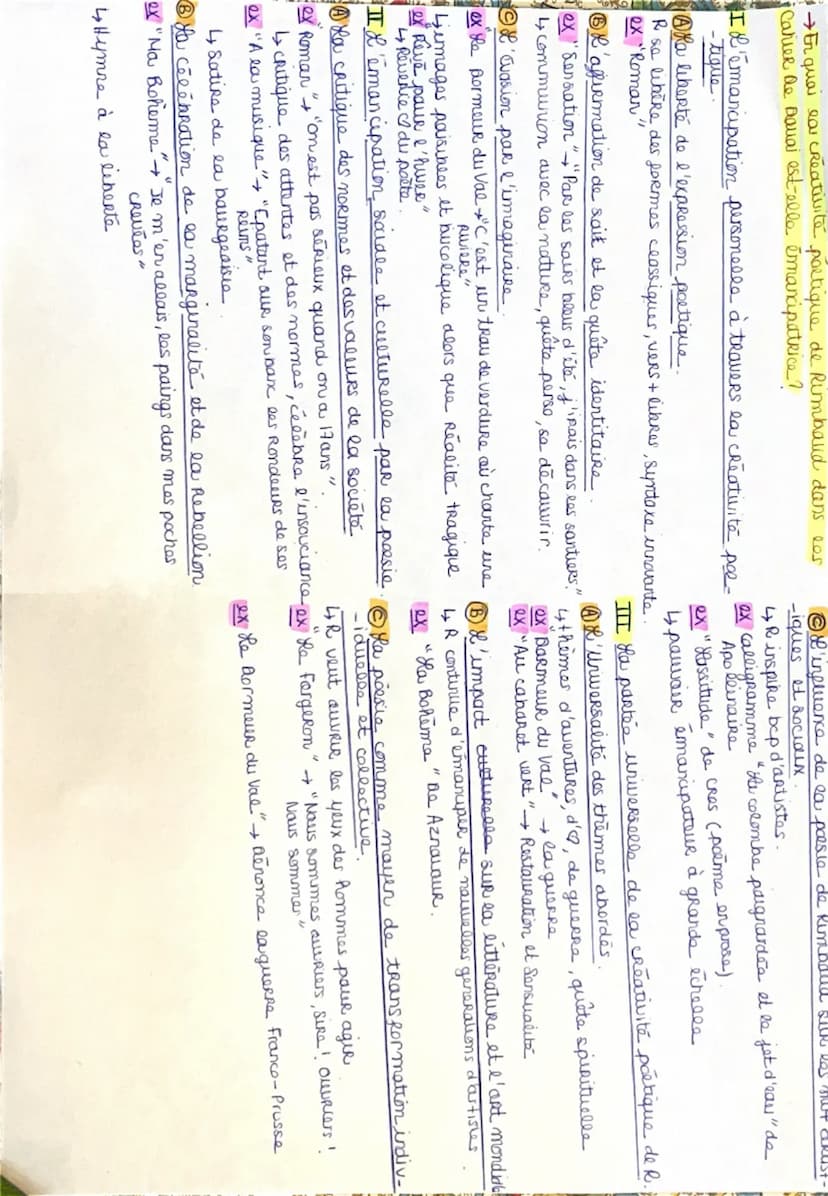 → En quoi la créativité poétique de Rimbaud dans les
Cahier de Douai est-elle émancipatrice?
I L'émancipation personnelle à travers la créativité poé-
-tique.
Ⓐ La liberté de l'expression poétique.
R se libère des formes classiques, vers + libres, syntaxe innovante.
ex "Roman"
Ⓑ L'affirmation de soit et la quête identitaire.
ex "Sensation" → "Par les soirs bleus d'été, j'irais dans les sentiers."
↳ communion avec la nature, quête perso, se découvrir.
Ⓒ L'évasion par l'imaginaire.
ex "Le Dormeur du Val" → "C'est un trou de verdure où chante une
rivière"
↳ images paisibles et bucolique alors que réalité tragique
ex "Rêvé pour l'hiver"
↳ Rêverie ♡ du poète.
II L'émancipation sociale et culturelle par la poésie.
Ⓐ La critique des normes et des valeurs de la société
ex "Roman" → "on est pas sérieux quand on a 17 ans".
↳ critique des attentes et des normes, célèbre l'insouciance
ex "A la musique" → "Epatant sur son banc les rondeurs de ses
reins"
↳ Satire de la bourgeoisie.
Ⓑ La célébration de la marginalité et de la Rebellion
ex "Ma Bohème" → "Je m'en allais, les poings dans mes poches
crevées"
↳ Hymne à la liberté
Ⓒ L'influence de la poésie de Rimbaud sur les
-iques et sociaux.
↳ R inspire bcp d'artistes.
ex calligramme "La colombe poignardée et le jet d'eau" de
Apollinaire
ex "Lassitude" de Cros (poème en prose).
↳ pouvoir émancipateur à grande échelle
III La portée universelle de la créativité poétique de R.
Ⓐ L'Universalité des thèmes abordés.
↳ thèmes d'aventures, d'♡, de guerre, quête spirituelle
ex "Dormeur du Val" → la guerre
ex "Au cabaret vert" → Restauration et Sensualité
Ⓑ L'impact culturelle sur la littérature et l'art mondiale
↳ R continue d'émanciper de nouvelles generations d'artistes.
ex "La Bohème" De Aznavour.
Ⓒ La poésie comme moyen de transformation indiv-
-iduelle et collective.
↳ R veut ouvrir les yeux des hommes pour agir
ex "Le Forgeron" → "Nous sommes ouvriers, sire! Ouvriers!
Nous sommes"
ex Le Dormeur du Val" → Dénonce la guerre Franco-Prusse